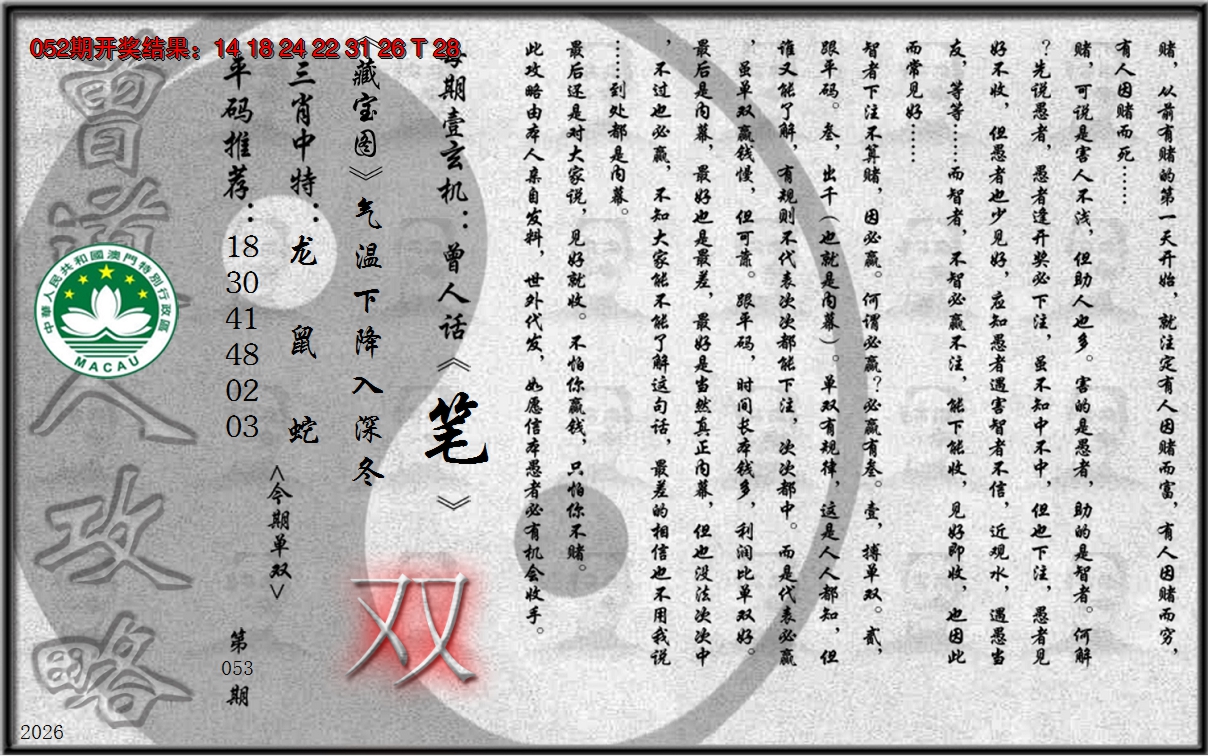 052期开奖结果：14 18 24 22 31 26 T 28
赌，从前有赌的第一天开始，就注定有人因赌而富，有人因赌而穷，
有人因赌而死……
赌，可说是害人不浅，但助人也多。害的是愚者，助的是智者。何解
？先说愚者，愚者逢开奖必下注，虽不知中不中，但也下注，愚者见
好不收，但愚者也少见好，应知愚者遇害智者不信，近观水，遇愚当
友，等等……而智者，不智必赢不注，能下能收，见好即收，也因此
而常见好……
智者下注不算赌，因必赢。何谓必赢？必赢有叁。壹，搏单双。贰，
跟平码。叁，出千（也就是内幕）。单双有规律，这是人人都知，但
谁又能了解，有规则不代表次次都能下注，次次都中。而是代表必赢
，虽单双赢钱慢，但可靠。跟平码，时间长本钱多，利润比单双好。
最后是内幕，最好也是最差，最好是当然真正内幕，但也没法次次中
，不过也必赢，不知大家能不能了解这句话，最差的相信也不用我说
……到处都是内幕。
最后还是对大家说，见好就收。不怕你赢钱，只怕你不赌。
此攻略由本人亲自发料，世外代发，如愿信本愚者必有机会收手。
每期壹玄机：曾人话《笔》
《藏宝图》气温下降入深冬
双
三肖中特：龙 鼠 蛇
<今期单双>
平码推荐：18 30 41 48 02 03
第053期
曾道人攻略
中華人民共和國澳門特別行政區
MACAU
2026